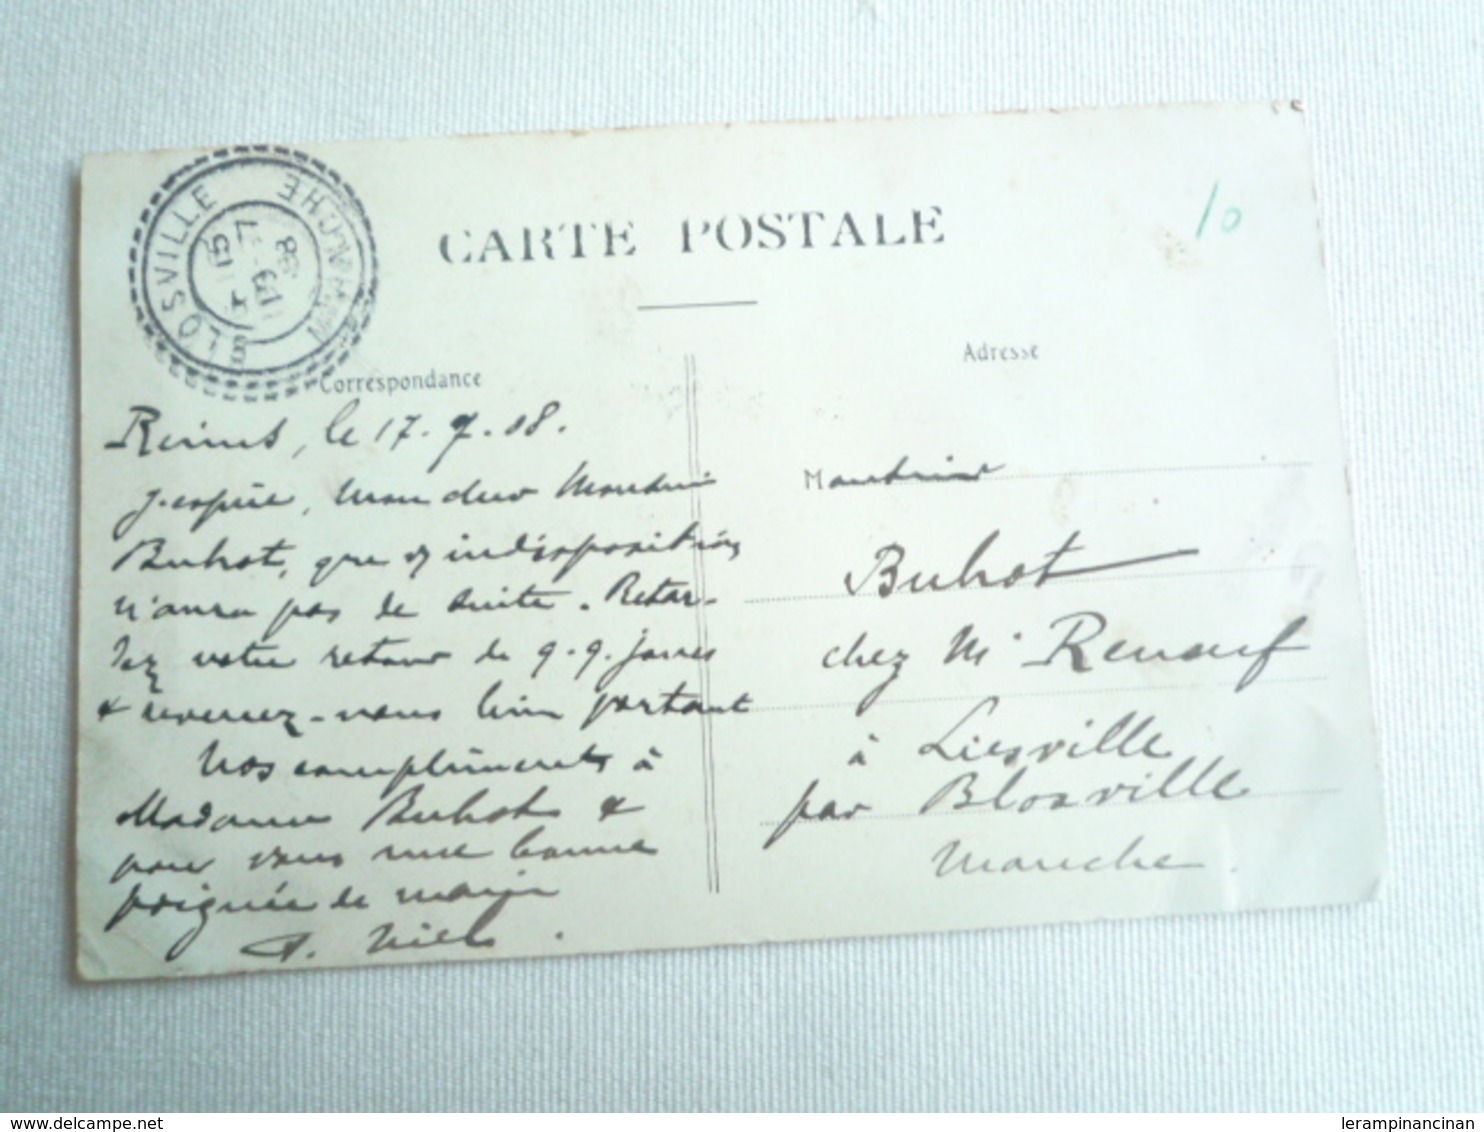 CARTE POSTALE
10
BLOSVILLE MANCHE
Correspondance
Adresse
Reims, le 17.7.08.
J'espère, mon cher Monsieur
Buhot, que l'indisposition
n'aura pas de suite. Retar-
dez votre retour de q.q. jours
& revenez-nous bien portant
Nos compliments à
Madame Buhot &
pour vous une bonne
poignée de main
Monsieur
Buhot
chez Mr Renouf
à Liesville
par Blosville
Manche.
delcampe.net
lerampinancinan